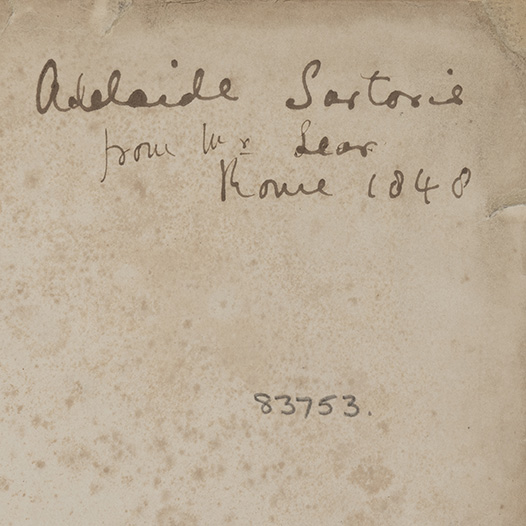 Adelaide Sartoris
from Mr Lear
Rome 1848
83753.